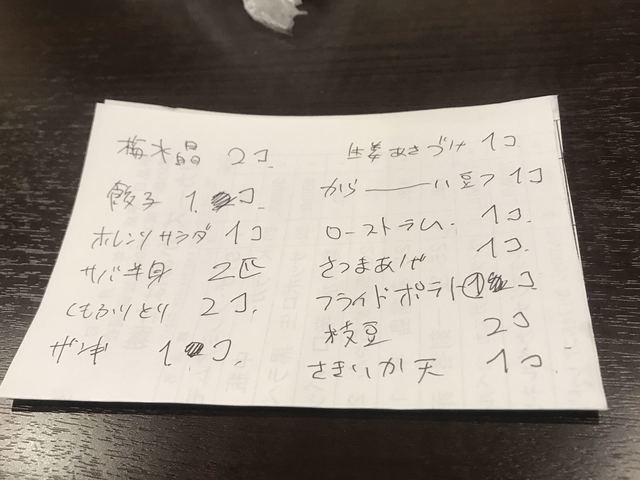 梅水晶 2コ
餃子 1コ.
ホレンソサラダ 1コ
サバ半身 2匹
くもふりとり 2コ.
ザンギ 1コ.
生姜あさづけ 1コ
から――い豆フ 1コ
ローストラム. 1コ.
さつまあげ 1コ.
フライドポテト①コ
枝豆 2コ
さきいか天 1コ.